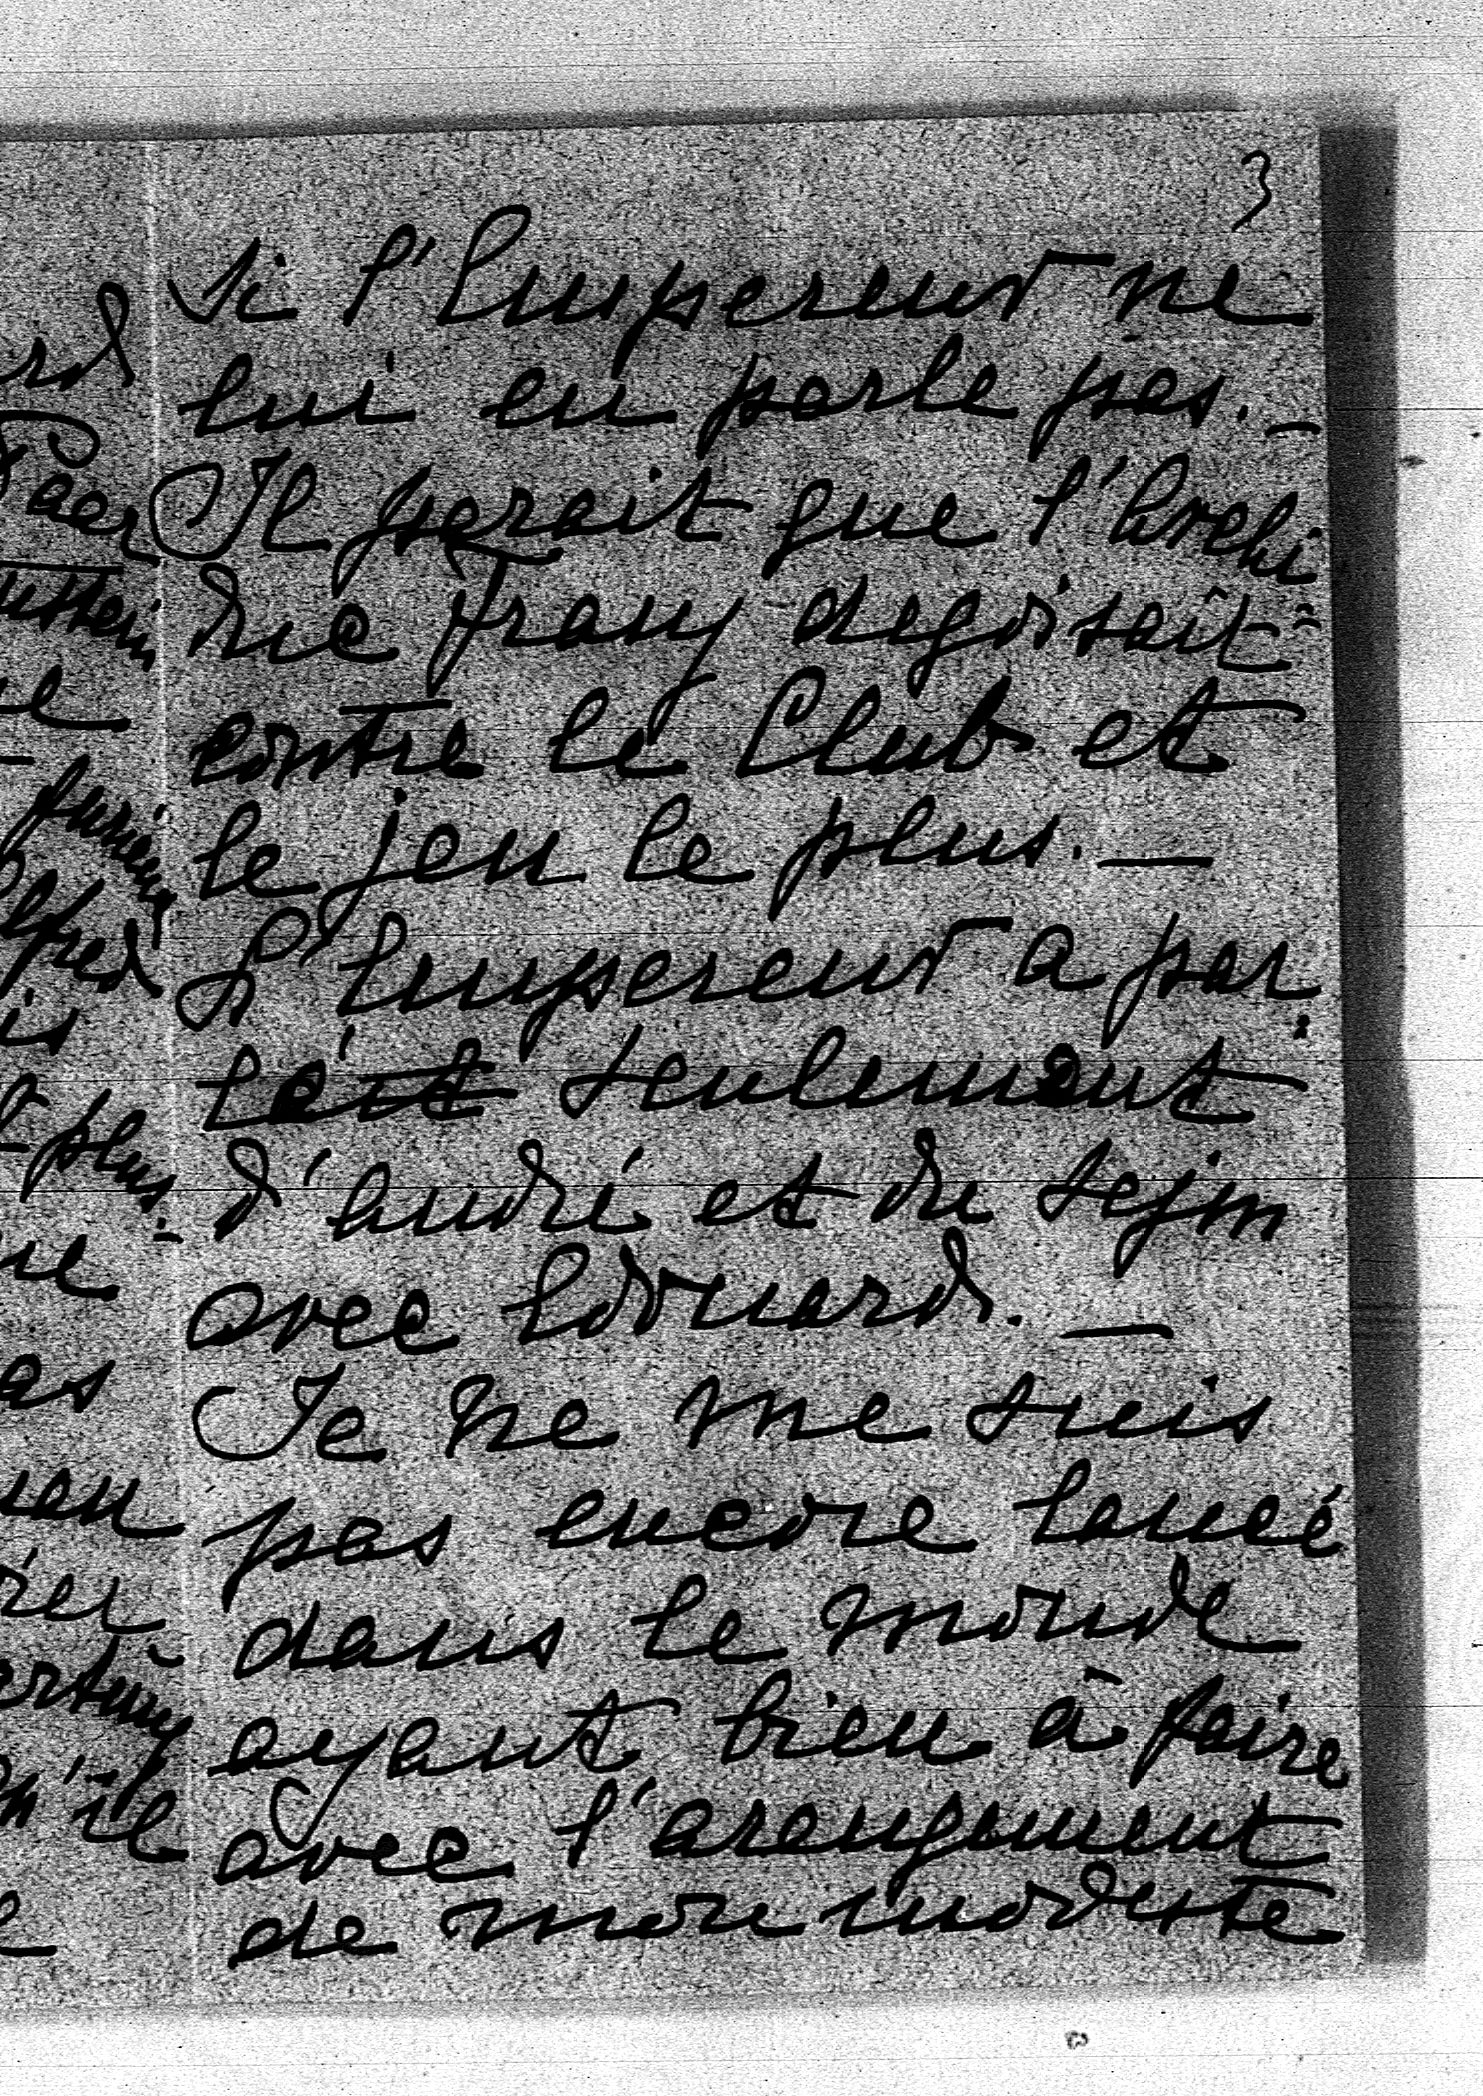 3
Si l'Empereur ne
lui en parle pas. —
Il parait que l'Archi
duc Franz degoisait
contre le Club et
le jeu le plus. —
L'Empereur a par:
lé seulement
d'André et de
avec Edouard. —
Je ne me suis
pas encore lancé
dans le monde
ayant bien à faire
avec l'arangement
de mon modeste
Paar
furieux
plus. -
qu'il